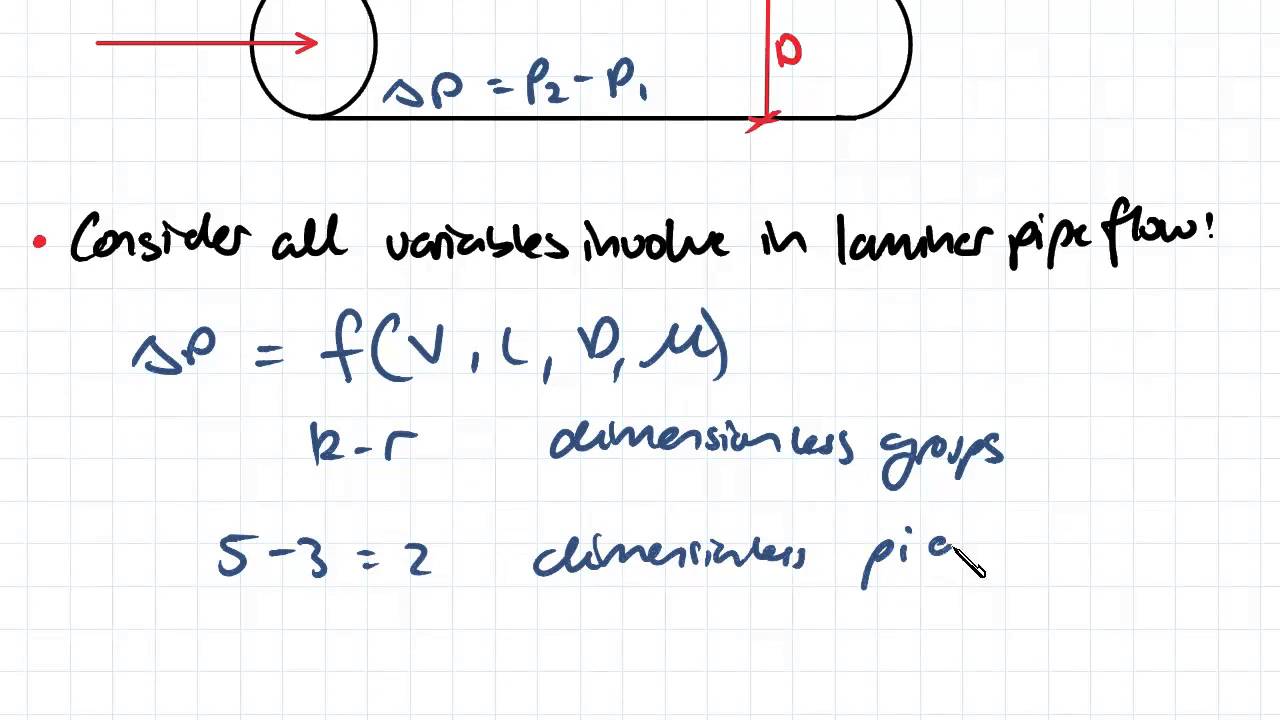 D
ΔP = P₂ - P₁
• Consider all variables involve in laminer pipe flow!
ΔP = f(V, L, D, μ)
k - r dimensionless groups
5 - 3 = 2 dimensionless pi